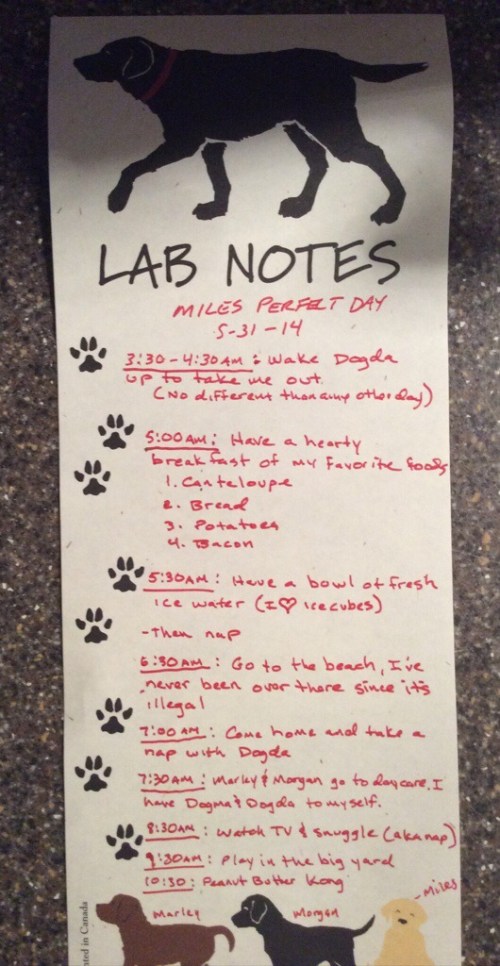 LAB NOTES
MILES PERFECT DAY
5-31-14
3:30-4:30AM: Wake Dogda
up to take me out.
(No different than any other day)
5:00AM: Have a hearty
breakfast of my favorite foods
1. Canteloupe
2. Bread
3. Potatoes
4. Bacon
5:30AM: Have a bowl of fresh
ice water (I♡ icecubes)
-Then nap
6:30AM: Go to the beach, I've
never been over there since its
illegal
7:00AM: Come home and take a
nap with Dogda
7:30AM: Marley & Morgan go to daycare, I
have Dogma & Dogda to myself.
8:30AM: Watch TV & snuggle (aka nap)
9:30AM: Play in the big yard
10:30: Peanut Butter Kong
Marley
Morgan
-Miles
nted in Canada